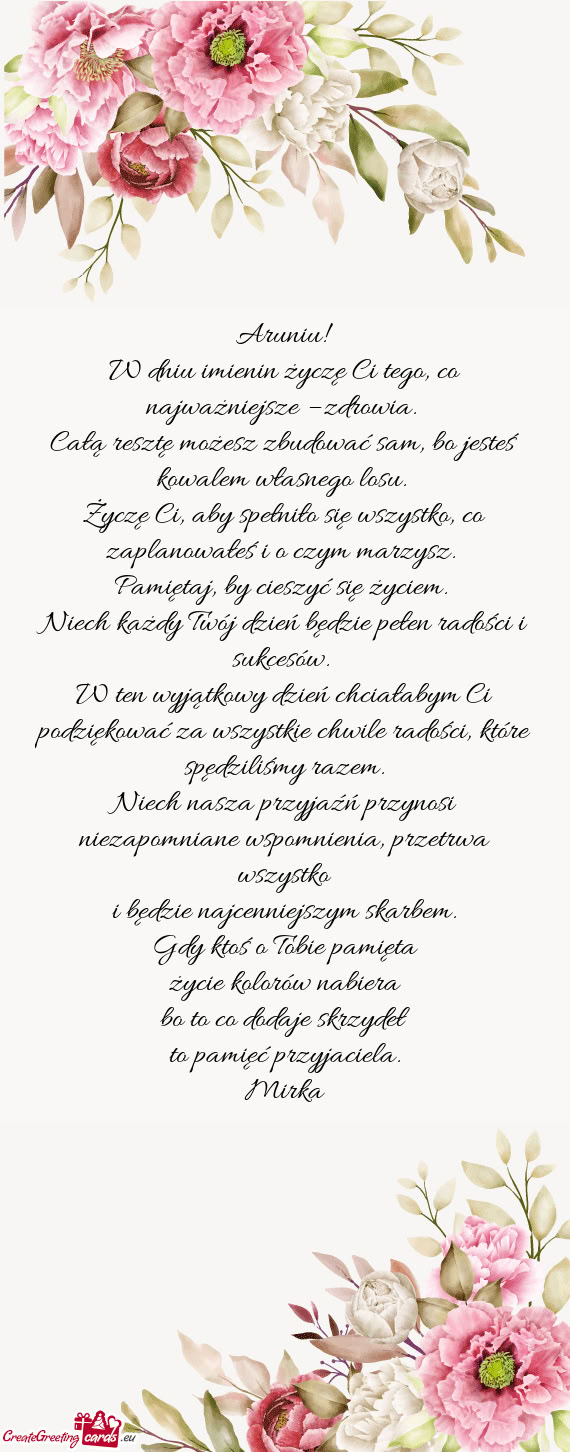 Aruniu!
W dniu imienin życzę Ci tego, co
najważniejsze – zdrowia.
Całą resztę możesz zbudować sam, bo jesteś
kowalem własnego losu.
Życzę Ci, aby spełniło się wszystko, co
zaplanowałeś i o czym marzysz.
Pamiętaj, by cieszyć się życiem.
Niech każdy Twój dzień będzie pełen radości i
sukcesów.
W ten wyjątkowy dzień chciałabym Ci
podziękować za wszystkie chwile radości, które
spędziliśmy razem.
Niech nasza przyjaźń przynosi
niezapomniane wspomnienia, przetrwa
wszystko
i będzie najcenniejszym skarbem.
Gdy ktoś o Tobie pamięta
życie kolorów nabiera
bo to co dodaje skrzydeł
to pamięć przyjaciela.
Mirka
CreateGreeting cards .eu